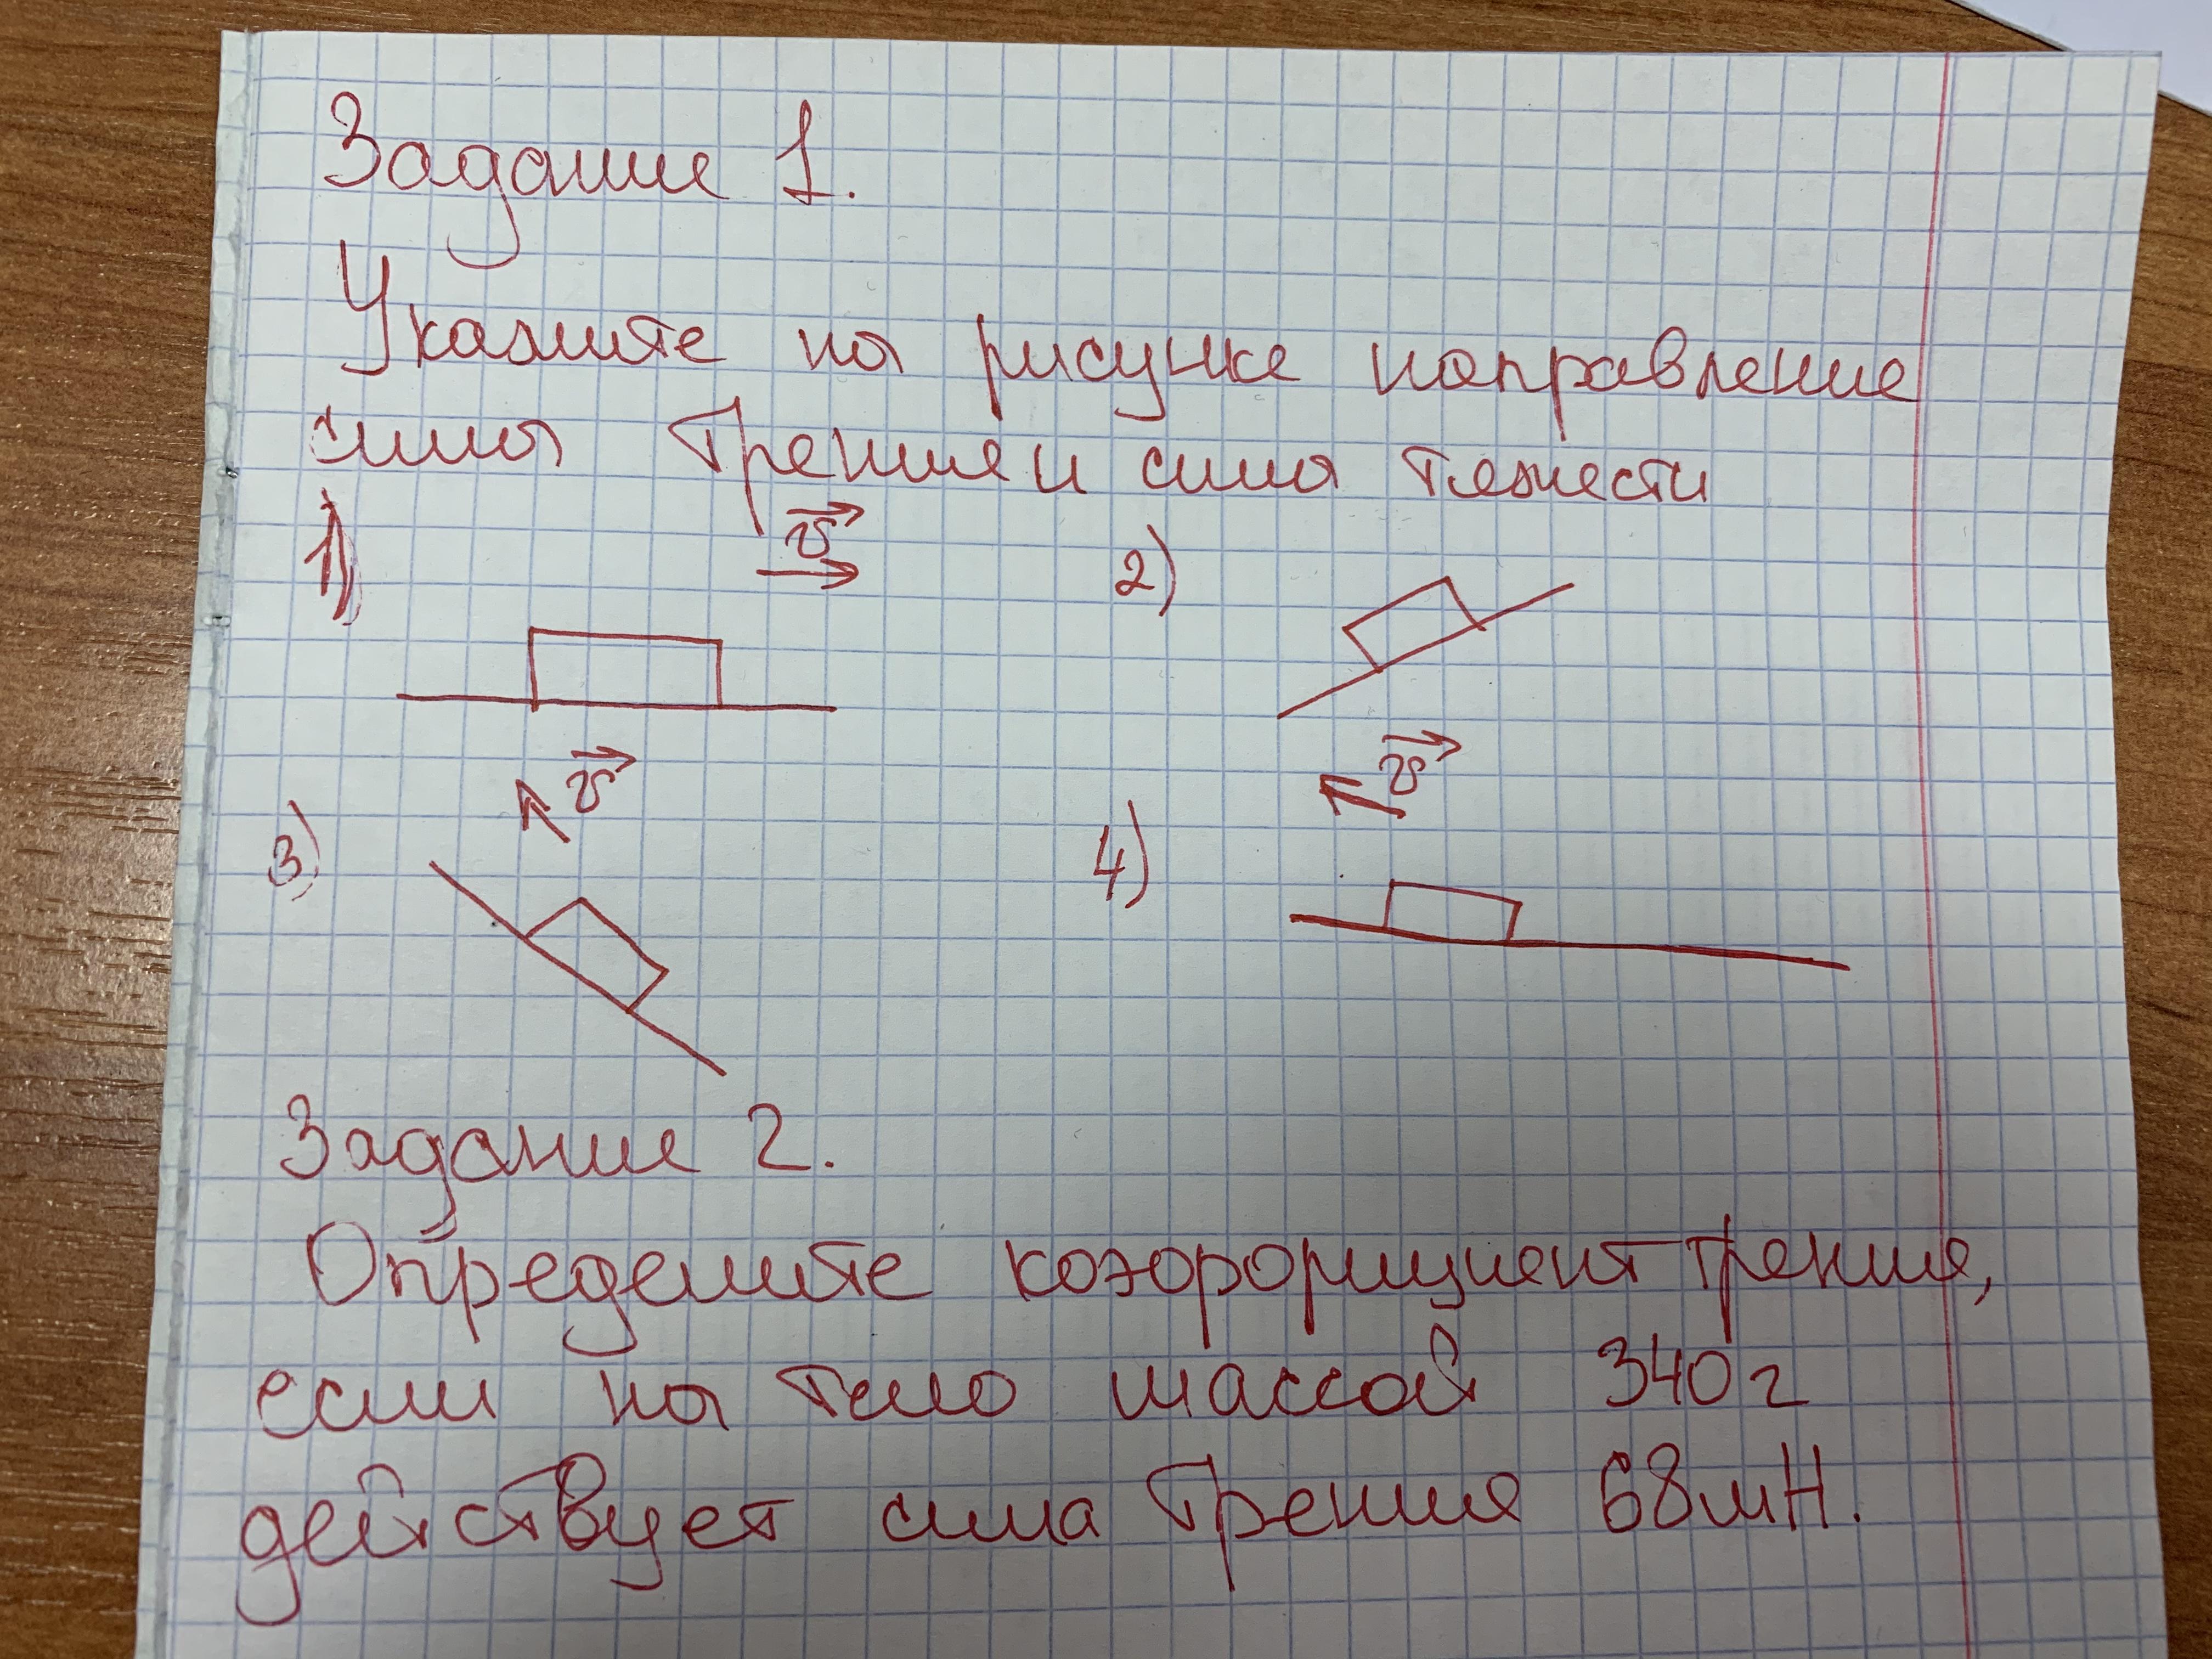 Задание 1.
Укажите на рисунке направление
силы трения и силы тяжести
1) v 2)
3) v 4) v
Задание 2.
Определите коэффициент трения,
если на тело массой 340 г
действует сила трения 68 мН.